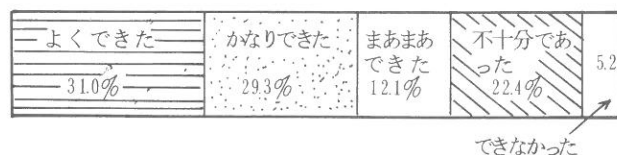 よくできた
31.0%
かなりできた
29.3%
まあまあ
できた
12.1%
不十分であ
った
22.4%
5.2
できなかった